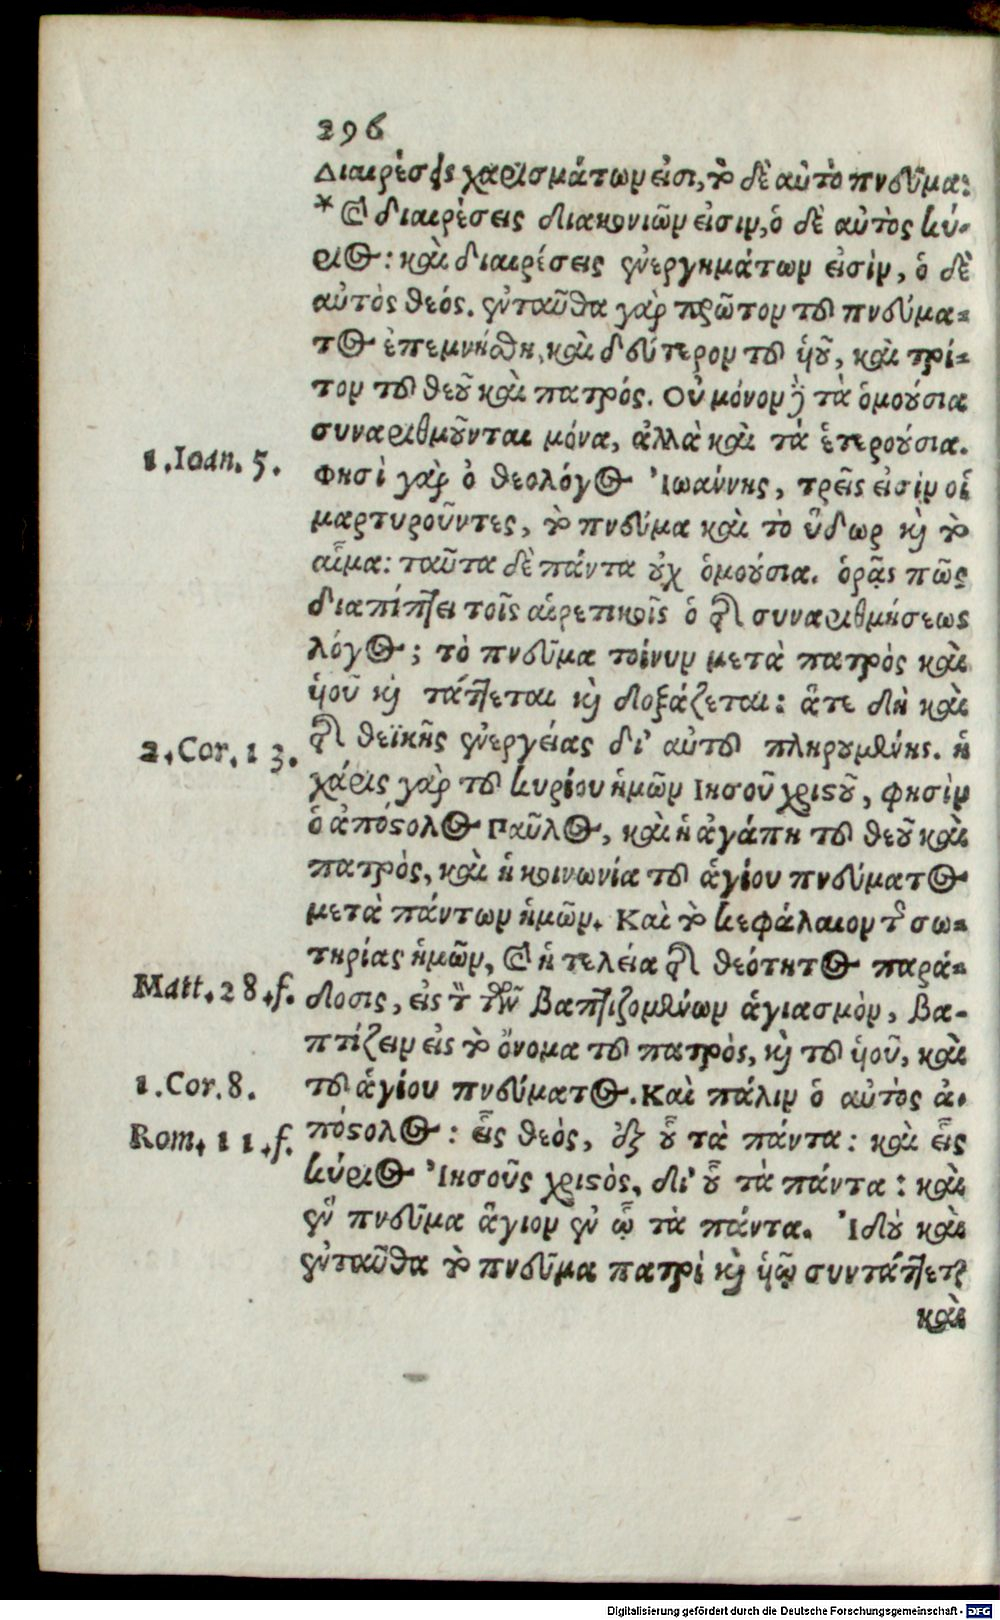 296
Διαιρέσεις χαρισμάτων εἰσι, τὸ δὲ αὐτὸ πνεῦμα:
* καὶ διαιρέσεις διακονιῶν εἰσιν, ὁ δὲ αὐτὸς κύ-
ριος: καὶ διαιρέσεις ἐνεργημάτων εἰσὶν, ὁ δὲ
αὐτὸς θεός. ἐνταῦθα γὰρ πρῶτον τοῦ πνεύμα-
τος ἐπεμνήσθη, καὶ δεύτερον τοῦ ὑιοῦ, καὶ τρί-
τον τοῦ θεοῦ καὶ πατρός. Οὐ μόνον δὲ τὰ ὁμοούσια
συναριθμοῦνται μόνα, ἀλλὰ καὶ τὰ ἑτερούσια.
1. Ioan. 5.
Φησὶ γὰρ ὁ θεολόγος Ἰωάννης, τρεῖς εἰσὶν οἱ
μαρτυροῦντες, τὸ πνεύμα καὶ τὸ ὕδωρ καὶ τὸ
αἷμα: ταῦτα δὲ πάντα οὐχ ὁμούσια. ὁρᾷς πῶς
διαπίπτει τοῖς αἱρετικοῖς ὁ τῆς συναριθμήσεως
λόγος; τὸ πνεῦμα τοίνυν μετὰ πατρὸς καὶ
ὑιοῦ καὶ τάττεται καὶ δοξάζεται: ἅτε δὴ καὶ
2. Cor. 13.
τῆς θεϊκῆς ἐνεργείας δι' αὐτοῦ πληρουμένης. ἡ
χάρις γὰρ τοῦ κυρίου ἡμῶν Ιησοῦ χριστοῦ, φησὶν
ὁ ἀπόστολος Παῦλος, καὶ ἡ ἀγάπη τοῦ θεοῦ καὶ
πατρὸς, καὶ ἡ κοινωνία τοῦ ἁγίου πνεύματος
μετὰ πάντων ἡμῶν. Καὶ τὸ κεφάλαιον τῆς σω-
τηρίας ἡμῶν, καὶ ἡ τελεία τῆς θεότητος παρά-
Matt. 28. f.
δοσις, εἰς τὸν τῶν βαπτιζομένων ἁγιασμὸν, βα-
πτίζειν εἰς τὸ ὄνομα τοῦ πατρὸς, καὶ τοῦ ὑιοῦ, καὶ
1. Cor. 8.
τοῦ ἁγίου πνεύματος. Καὶ πάλιν ὁ αὐτὸς ἀ-
Rom. 11. f.
πόστολος: εἷς θεὸς, ἐξ οὗ τὰ πάντα: καὶ εἷς
κύριος Ἰησοῦς χριστὸς, δι' οὗ τὰ πάντα: καὶ
ἓν πνεῦμα ἅγιον ἐν ᾧ τὰ πάντα. Ἰδοὺ καὶ
ἐνταῦθα τὸ πνεῦμα πατρὶ καὶ ὑιῷ συντάττεται
καὶ
Digitalisierung gefördert durch die Deutsche Forschungsgemeinschaft - DFG